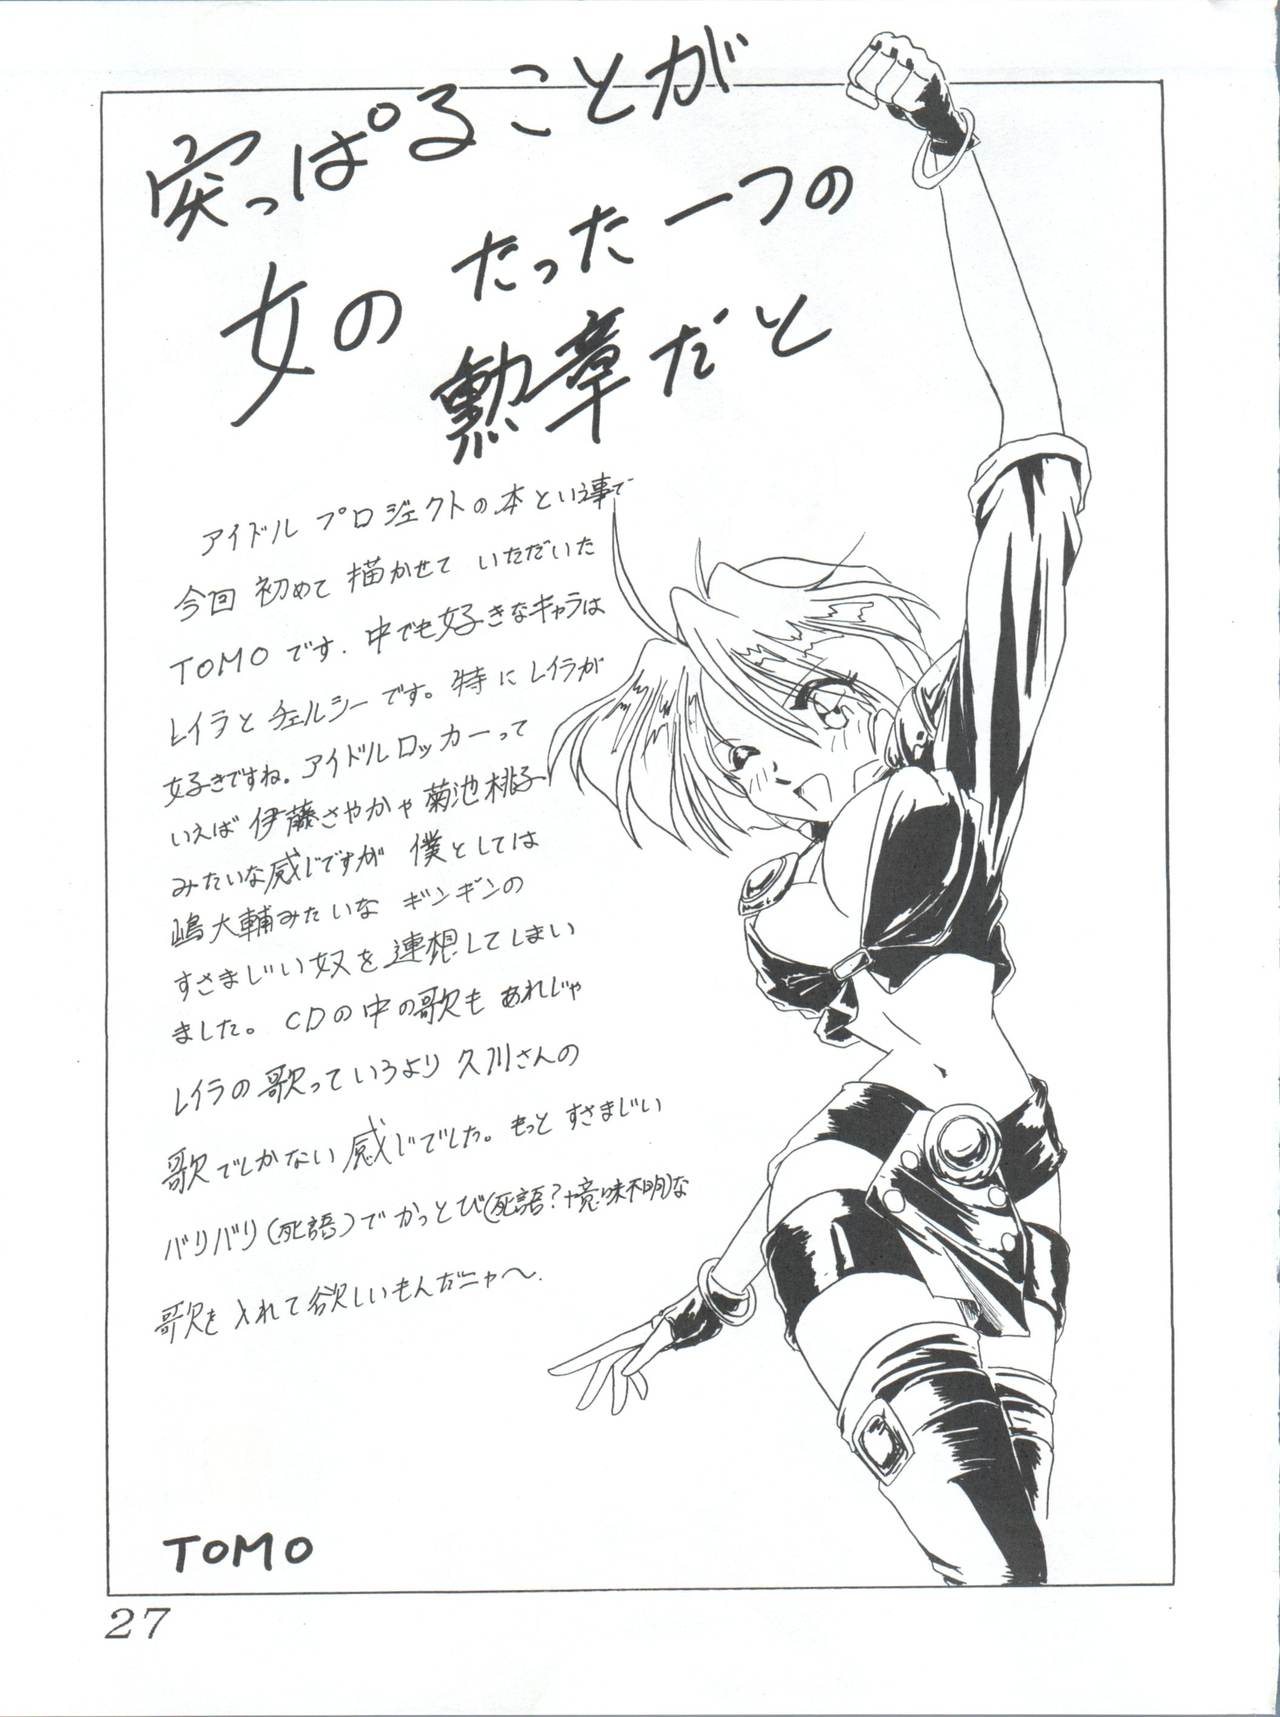 突っぱることが
女の たった一つの
勲章だと
アイドル プロジェクトの本という事で
今回 初めて 描かせて いただいた
TOMOです. 中でも好きなキャラは
レイラと チェルシーです。特に レイラが
好きですね。アイドルロッカーって
いえば 伊藤さやかや 菊池桃子
みたいな感じですが 僕としては
嶋大輔みたいな ギンギンの
すさまじい奴を連想してしまい
ました。CDの中の歌も あれじゃ
レイラの歌っていうより 久川さんの
歌でしかない感じでした。もっと すさまじい
バリバリ(死語)で かっとび(死語?+意味不明)な
歌を入れて欲しいもんだニャ〜.
TOMO
27